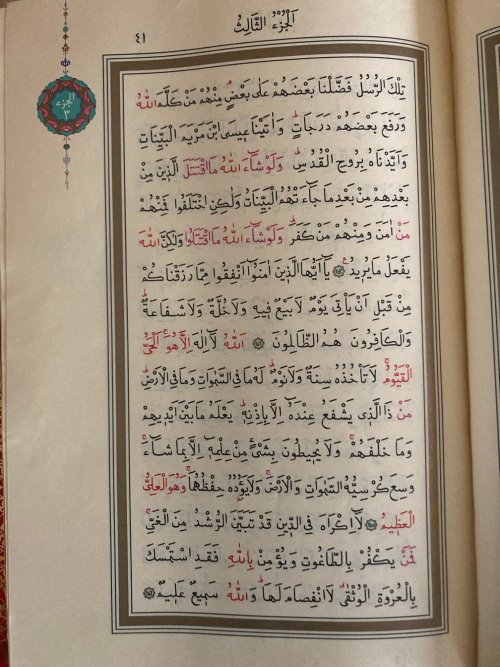 اَلْجُزْءُ الثَّالِثُ
٤١
الجزء
٣
تِلْكَ الرُّسُلُ فَضَّلْنَا بَعْضَهُمْ عَلٰى بَعْضٍۢ مِنْهُمْ مَنْ كَلَّمَ اللّٰهُ
وَرَفَعَ بَعْضَهُمْ دَرَجَاتٍۜ وَاٰتَيْنَا عِيسَى ابْنَ مَرْيَمَ الْبَيِّنَاتِ
وَاَيَّدْنَاهُ بِرُوحِ الْقُدُسِۜ وَلَوْ شَٓاءَ اللّٰهُ مَا اقْتَتَلَ الَّذ۪ينَ مِنْ
بَعْدِهِمْ مِنْ بَعْدِ مَا جَٓاءَتْهُمُ الْبَيِّنَاتُ وَلٰكِنِ اخْتَلَفُوا فَمِنْهُمْ
مَنْ اٰمَنَ وَمِنْهُمْ مَنْ كَفَرَۜ وَلَوْ شَٓاءَ اللّٰهُ مَا اقْتَتَلُوا وَلٰكِنَّ اللّٰهَ
يَفْعَلُ مَا يُر۪يدُ۟ ﴿٢٥٣﴾ يَٓا اَيُّهَا الَّذ۪ينَ اٰمَنُٓوا اَنْفِقُوا مِمَّا رَزَقْنَاكُمْ
مِنْ قَبْلِ اَنْ يَأْتِيَ يَوْمٌ لَا بَيْعٌ ف۪يهِ وَلَا خُلَّةٌ وَلَا شَفَاعَةٌۜ
وَالْكَافِرُونَ هُمُ الظَّالِمُونَ ﴿٢٥٤﴾ اَللّٰهُ لَٓا اِلٰهَ اِلَّا هُوَۚ اَلْحَيُّ
الْقَيُّومُۚ لَا تَأْخُذُهُ سِنَةٌ وَلَا نَوْمٌۜ لَهُ مَا فِي السَّمٰوَاتِ وَمَا فِي الْاَرْضِۜ
مَنْ ذَا الَّذ۪ي يَشْفَعُ عِنْدَهُٓ اِلَّا بِاِذْنِه۪ۜ يَعْلَمُ مَا بَيْنَ اَيْد۪يهِمْ
وَمَا خَلْفَهُمْۚ وَلَا يُح۪يطُونَ بِشَيْءٍ مِنْ عِلْمِه۪ٓ اِلَّا بِمَا شَٓاءَۚ
وَسِعَ كُرْسِيُّهُ السَّمٰوَاتِ وَالْاَرْضَۚ وَلَا يَؤُ۫دُهُ حِفْظُهُمَاۚ وَهُوَ الْعَلِيُّ
الْعَظ۪يمُ ﴿٢٥٥﴾ لَٓا اِكْرَاهَ فِي الدّ۪ينِ قَدْ تَبَيَّنَ الرُّشْدُ مِنَ الْغَيِّۚ
فَمَنْ يَكْفُرْ بِالطَّاغُوتِ وَيُؤْمِنْ بِاللّٰهِ فَقَدِ اسْتَمْسَكَ
بِالْعُرْوَةِ الْوُثْقٰىۗ لَا انْفِصَامَ لَهَاۜ وَاللّٰهُ سَم۪يعٌ عَل۪يمٌ ﴿٢٥٦﴾